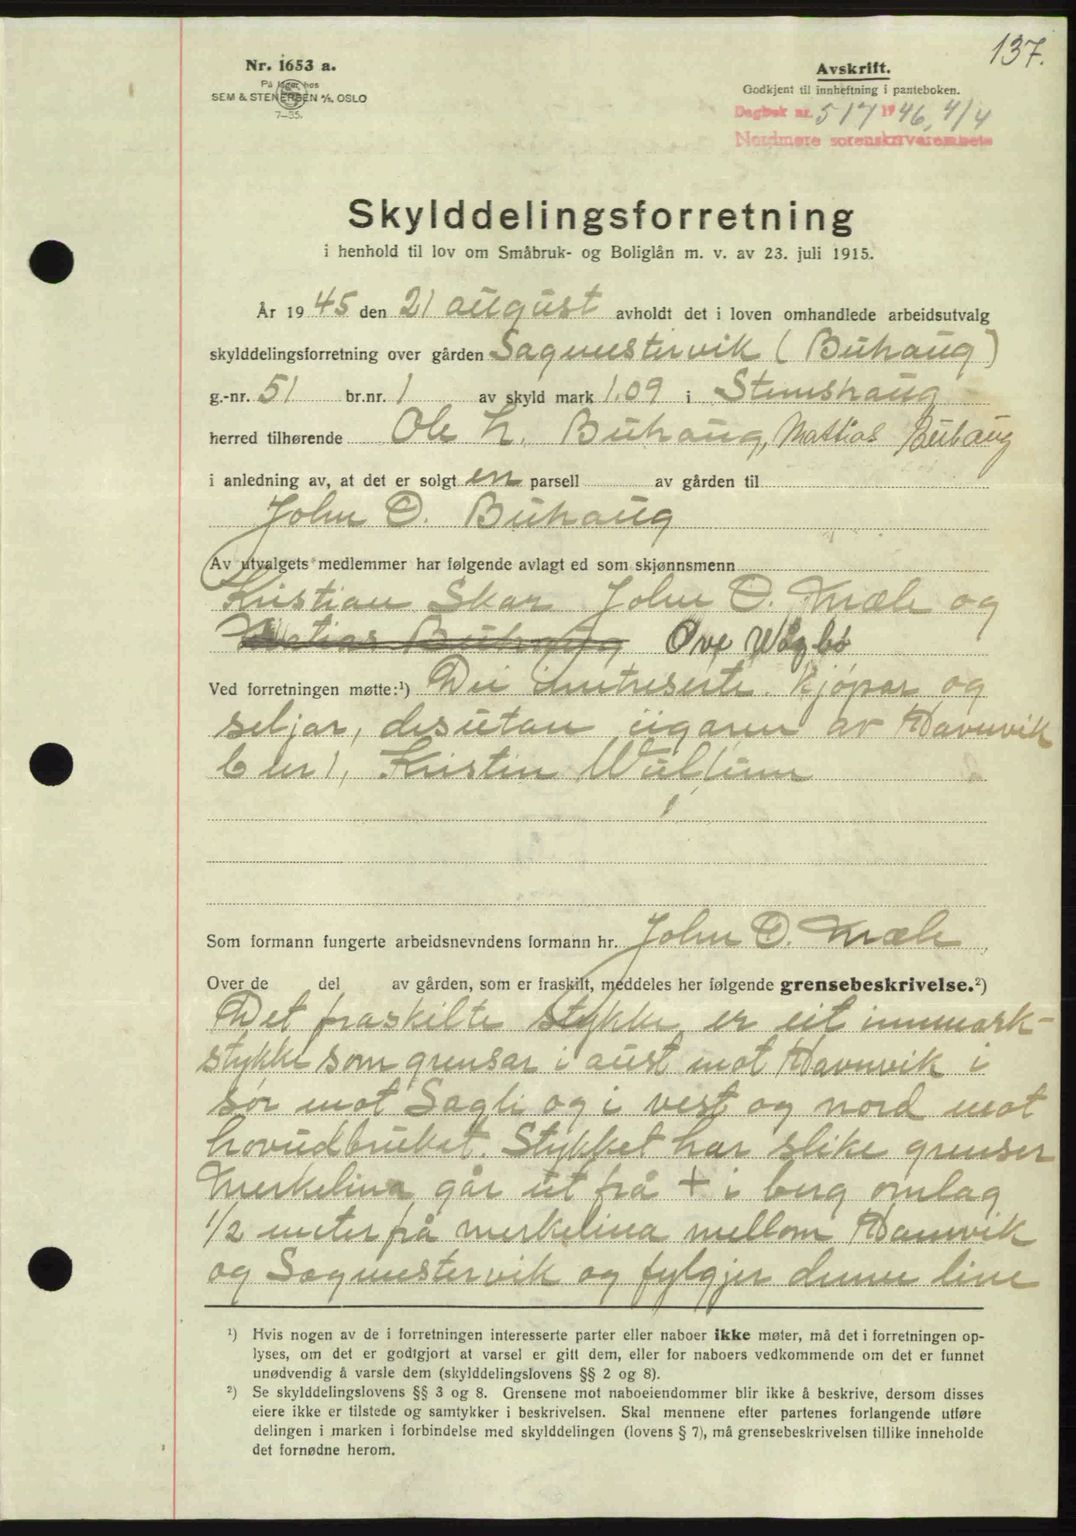 137.
Nr. 1653 a.
På lager hos
SEM & STENERSEN A/S, OSLO
7-35.
Avskrift.
Godkjent til innheftning i panteboken.
Dagbok nr. 517 1946, 4/4
Nordmøre sorenskriverembete
Skylddelingsforretning
i henhold til lov om Småbruk- og Boliglån m. v. av 23. juli 1915.
År 1945 den 21 august avholdt det i loven omhandlede arbeidsutvalg
skylddelingsforretning over gården Sagmestervik (Buhaug)
g.-nr. 51 br.nr. 1 av skyld mark 1.09 i Stemshaug
herred tilhørende Ole L. Buhaug, Mattias Buhaug
i anledning av, at det er solgt en parsell av gården til
John O. Buhaug
Av utvalgets medlemmer har følgende avlagt ed som skjønnsmenn
Kristian Skar John O. Mæle og
Matias Buhaug Ove Vågbø
Ved forretningen møtte:¹) Dei intreserte. kjøpar og
seljar, desutan eigaren av Havnvik
b nr 1, Kristin
Som formann fungerte arbeidsnevndens formann hr. John O. Mæle
Over de del av gården, som er fraskilt, meddeles her følgende grensebeskrivelse.²)
Det fraskilte stykke er eit innmark-
stykke som grensar i aust mot Havnvik i
sør mot Sagli og i vest og nord mot
hovudbruket. Stykket har slike grenser
Merkelina går ut frå + i berg omlag
1/2 meter frå merkelina mellom Havnvik
og Sagmestervik og fylgjer denne line
¹) Hvis nogen av de i forretningen interesserte parter eller naboer ikke møter, må det i forretningen op-
lyses, om det er godtgjort at varsel er gitt dem, eller for naboers vedkommende om det er funnet
unødvendig å varsle dem (skylddelingslovens §§ 2 og 8).
²) Se skylddelingslovens §§ 3 og 8. Grensene mot naboeiendommer blir ikke å beskrive, dersom disses
eiere ikke er tilstede og samtykker i beskrivelsen. Skal mennene efter partenes forlangende utføre
delingen i marken i forbindelse med skylddelingen (lovens § 7), må grensebeskrivelsen tillike inneholde
det fornødne herom.